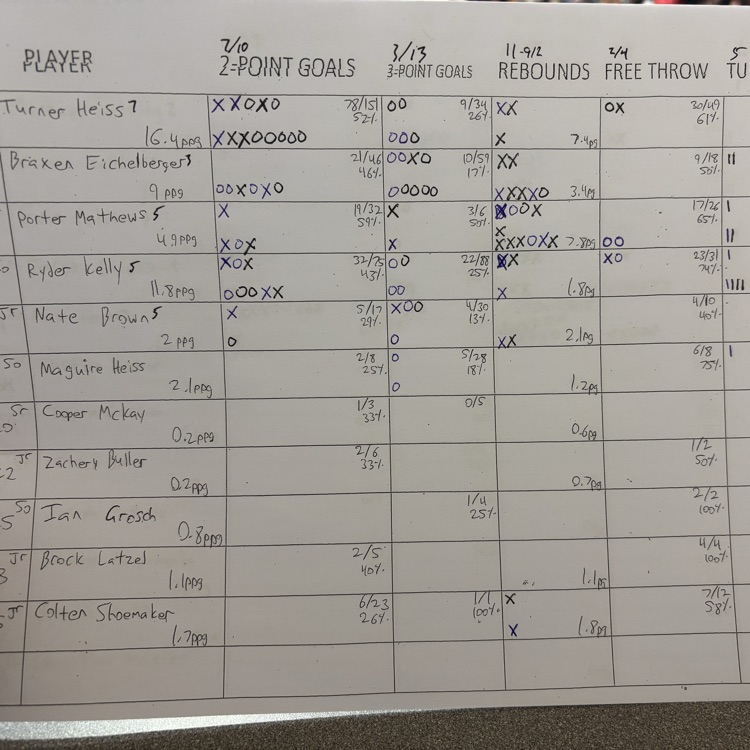 7/10 3/13 11-9/2 2/4 5
PLAYER 2-POINT GOALS 3-POINT GOALS REBOUNDS FREE THROW TU
Turner Heiss 7 XXOXO 78/151 OO 9/34 XX OX 30/49
52% 26% 61%
16.4ppg XXXOOOOO OOO X 7.4pg
Braxen Eichelberger 3 21/46 OOXO 10/59 XX 9/18 II
46% 17% 50%
9 ppg OOXOXO OOOOO XXXXO 3.4pg
Porter Mathews 5 X 19/32 X 3/6 OOX 17/26 I
59% 50% 65%
X
4.9ppg XOX X XXXOXX 7.8pg OO II
Ryder Kelly 5 XOX 32/75 OO 22/88 X XO 23/31 I
43% 25% 74%
11.8ppg OOOXX OO X 1.8pg IIII
Jr Nate Brown 5 X 5/17 XOO 4/30 4/10
29% 13% 40%
2 ppg O O XX 2.1pg
So Maguire Heiss 2/8 O 5/28 6/8 I
25% 18% 75%
2.1ppg O 1.2pg
Sr Cooper Mckay 1/3 0/5
33%
0.2ppg 0.6pg
Jr Zachery Buller 2/6 1/2
33% 50%
0.2ppg 0.7pg
So Ian Grosch 1/4 2/2
25% 100%
0.8ppg
Jr Brock Latzel 2/5 4/4
40% 100%
1.1ppg 1.1pg
Jr Colten Shoemaker 6/23 1/1 X 7/12
26% 100% 58%
1.7ppg X 1.8pg